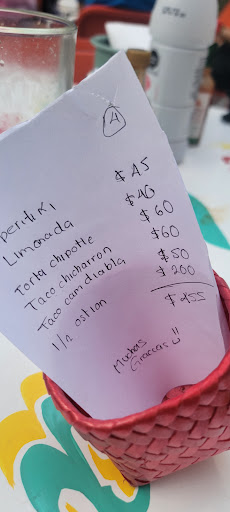 A
peritiki $45
Limonada $40
Torta chipotle $60
Taco chicharron $60
Taco cam diabla $50
1/2 ostion $200
$455
Muchas
Gracias